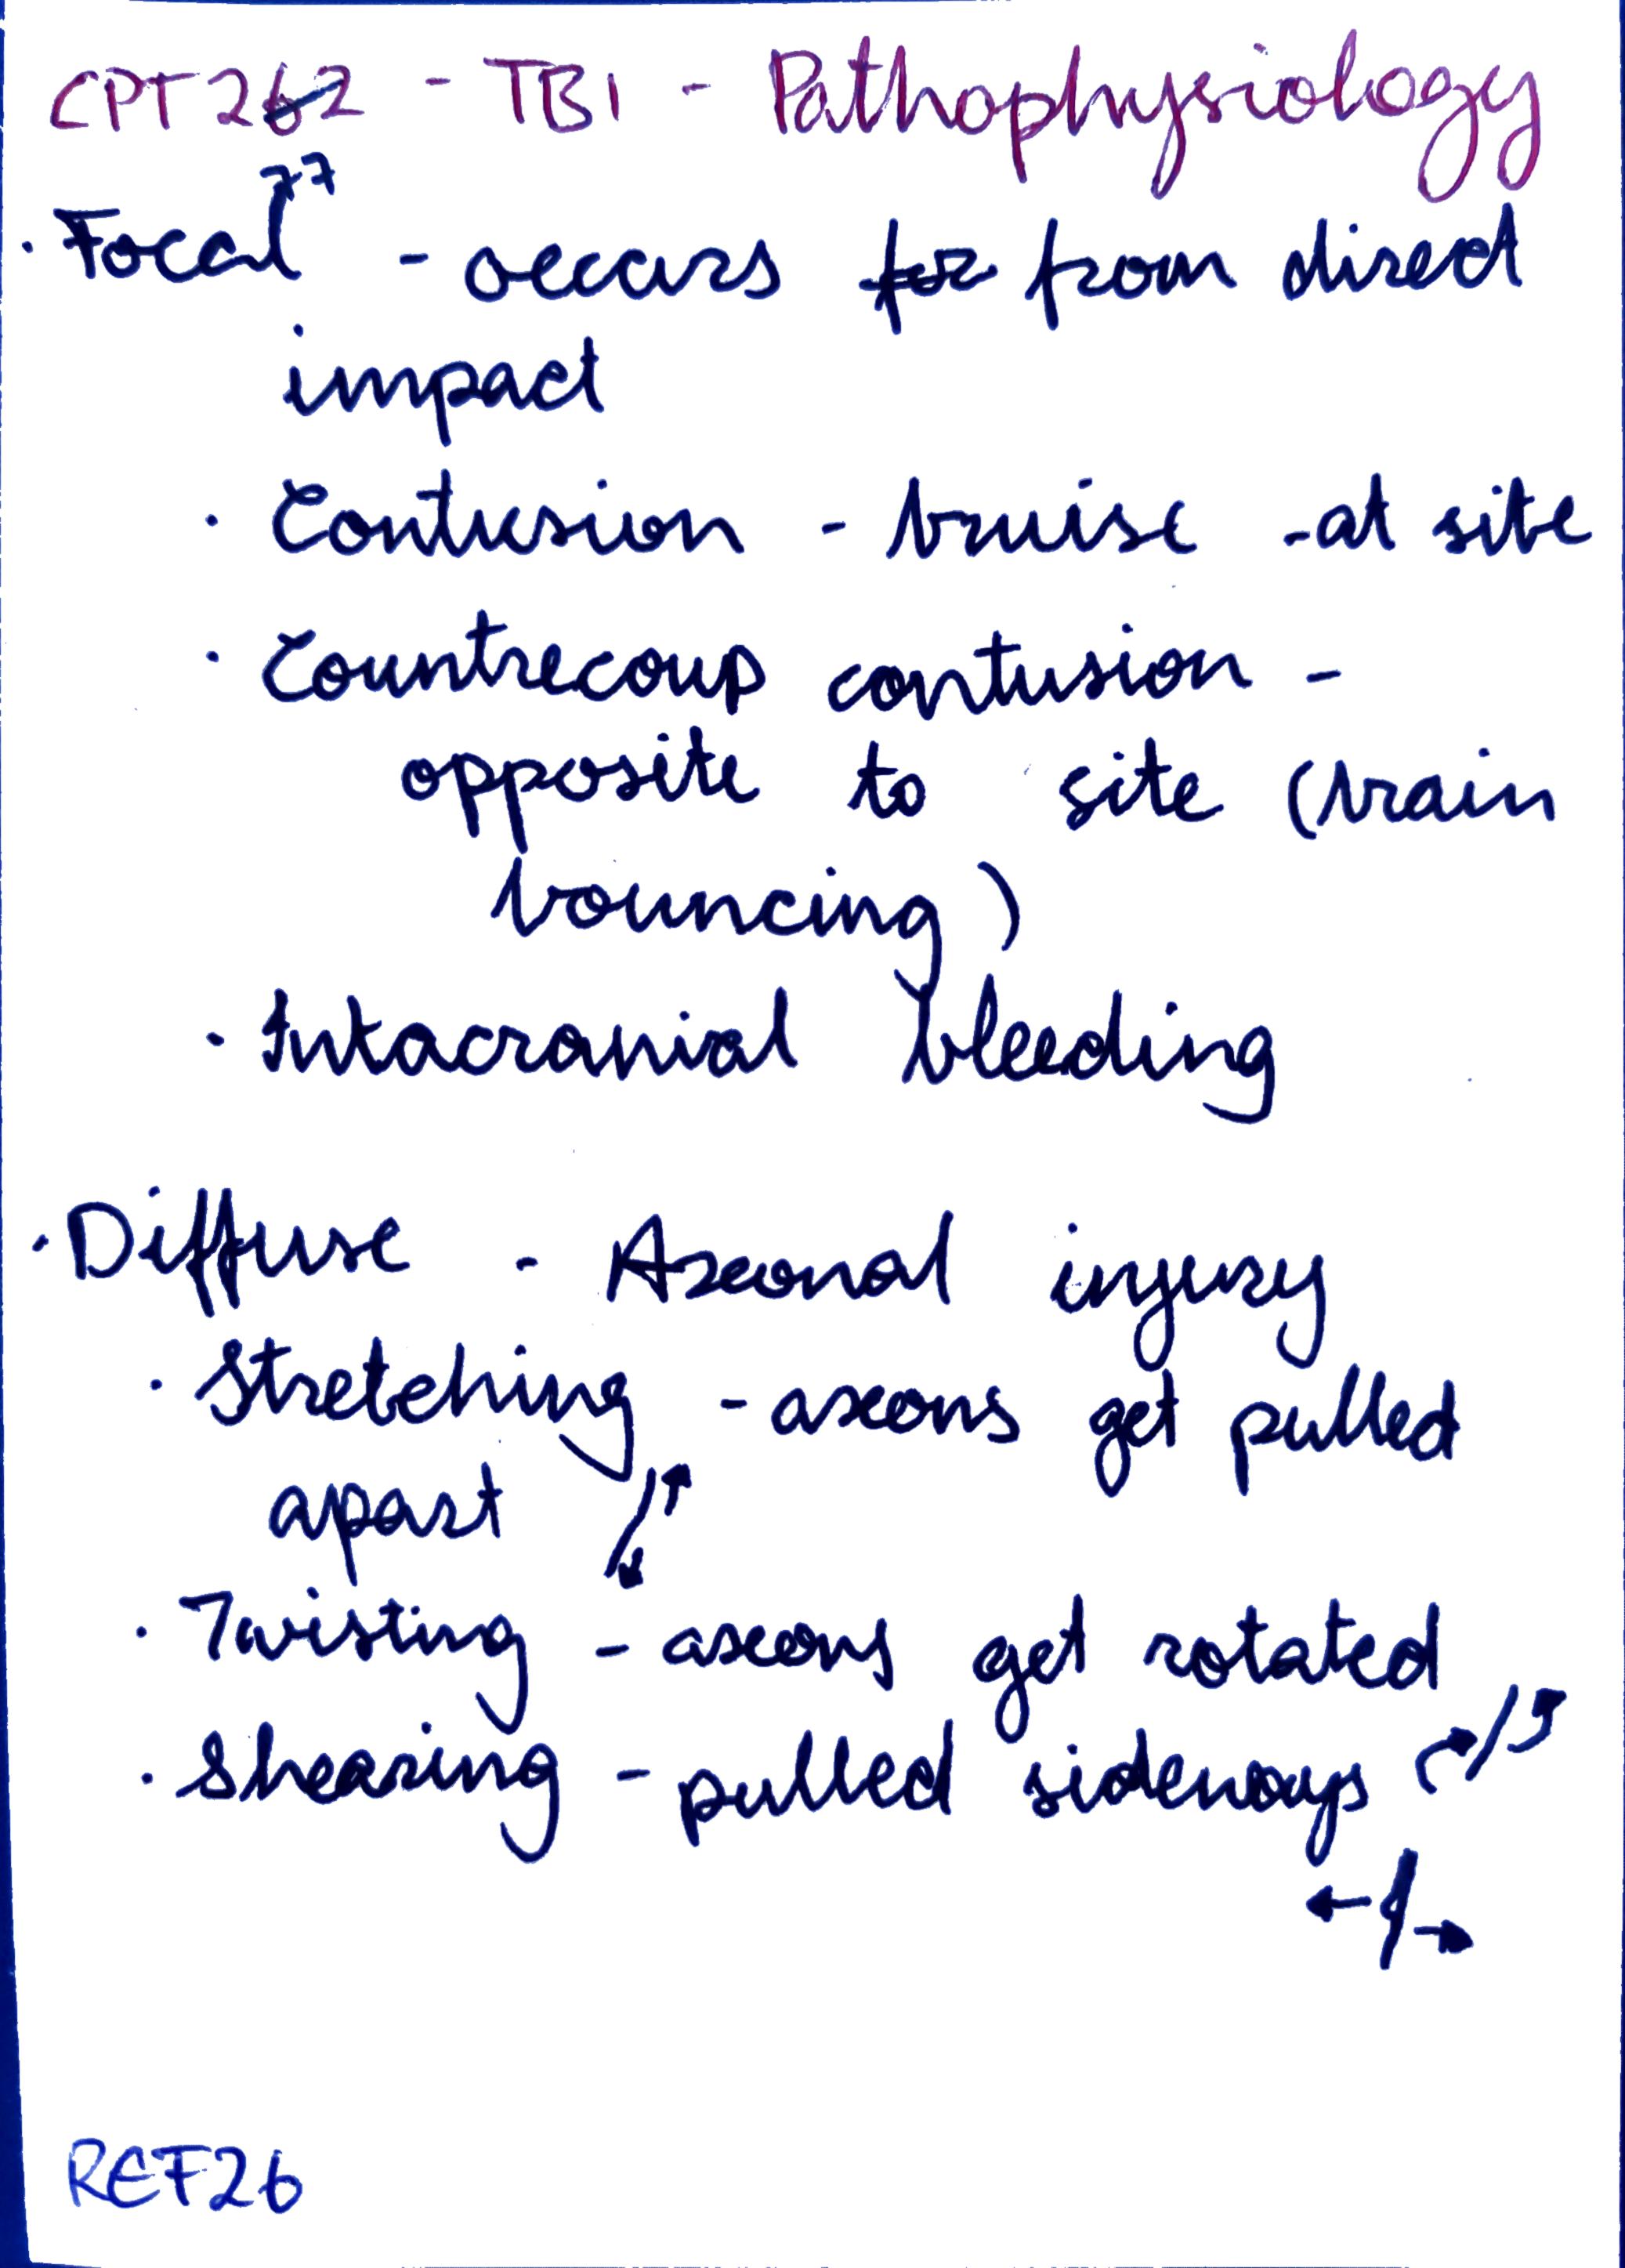 CPT 262 - TBI - Pathophysiology
77
· Focal - occurs for from direct
impact
· Contusion - bruise - at site
· Countrecoup contusion -
opposite to site (brain
bouncing)
· Intacranial bleeding
· Diffuse - Axonal injury
· Stretching - axons get pulled
apart
· Twisting - axons get rotated
· Shearing - pulled sideways
REF26